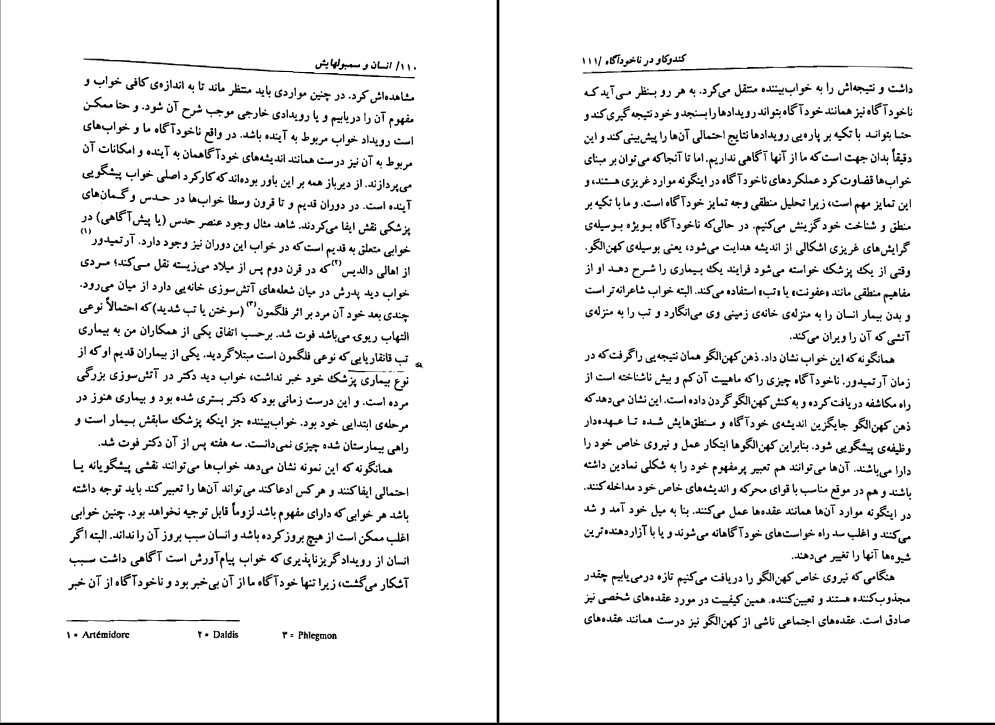 ۱۱۰/ انسان و سمبولهایش
مشاهده‌اش کرد. در چنین مواردی باید منتظر ماند تا به اندازه‌ی کافی خواب و
مفهوم آن را دریابیم و یا رویدادی خارجی موجب شرح آن شود. و حتا ممکن
است رویداد خواب مربوط به آینده باشد. در واقع ناخودآگاه ما و خواب‌های
مربوط به آن نیز درست همانند اندیشه‌های خودآگاهمان به آینده و امکانات آن
می‌پردازند. از دیرباز همه بر این باور بوده‌اند که کارکرد اصلی خواب پیشگویی
آینده است. در دوران قدیم و تا قرون وسطا خواب‌ها در حدس و گمان‌های
پزشکی نقش ایفا می‌کردند. شاهد مثال وجود عنصر حدس (یا پیش‌آگاهی) در
خوابی متعلق به قدیم است که در خواب این دوران نیز وجود دارد. آرتمیدور(۱)
از اهالی دالدیس(۲) که در قرن دوم پس از میلاد می‌زیسته نقل می‌کند؛ مردی
خواب دید پدرش در میان شعله‌های آتش‌سوزی خانه‌یی دارد از میان می‌رود.
چندی بعد خود آن مرد بر اثر فلگمون(۳) (سوختن یا تب شدید) که احتمالاً نوعی
التهاب ریوی می‌باشد فوت شد. برحسب اتفاق یکی از همکاران من به بیماری
تب قانقاریایی که نوعی فلگمون است مبتلا گردید. یکی از بیماران قدیم او که از
نوع بیماری پزشک خود خبر نداشت، خواب دید دکتر در آتش‌سوزی بزرگی
مرده است. و این درست زمانی بود که دکتر بستری شده بود و بیماری هنوز در
مرحله‌ی ابتدایی خود بود. خواب‌بیننده جز اینکه پزشک سابقش بیمار است و
راهی بیمارستان شده چیزی نمی‌دانست. سه هفته پس از آن دکتر فوت شد.
همانگونه که این نمونه نشان می‌دهد خواب‌ها می‌توانند نقشی پیشگویانه یا
احتمالی ایفا کنند و هر کس ادعا کند می‌تواند آن‌ها را تعبیر کند باید توجه داشته
باشد هر خوابی که دارای مفهوم باشد لزوماً قابل توجیه نخواهد بود. چنین خوابی
اغلب ممکن است از هیچ بروز کرده باشد و انسان سبب بروز آن را نداند. البته اگر
انسان از رویداد گریزناپذیری که خواب پیام‌آورش است آگاهی داشت سبب
آشکار می‌گشت؛ زیرا تنها خودآگاه ما از آن بی‌خبر بود و ناخودآگاه از آن خبر
۱ = Artémidore ۲ = Daldis ۳ = Phlegmon
کندوکاو در ناخودآگاه /۱۱۱
داشت و نتیجه‌اش را به خواب‌بیننده منتقل می‌کرد. به هر رو بنظر می‌آید که
ناخودآگاه نیز همانند خودآگاه بتواند رویدادها را بسنجد و خود نتیجه گیری کند و
حتا بتواند با تکیه بر پاره‌یی رویدادها نتایج احتمالی آن‌ها را پیش‌بینی کند و این
دقیقاً بدان جهت است که ما از آنها آگاهی نداریم. اما تا آنجا که می‌توان بر مبنای
خواب‌ها قضاوت کرد عملکردهای ناخودآگاه در اینگونه موارد غریزی هستند، و
این تمایز مهم است، زیرا تحلیل منطقی وجه تمایز خودآگاه است. و ما با تکیه بر
منطق و شناخت خود گزینش می‌کنیم. در حالی‌که ناخودآگاه بویژه بوسیله‌ی
گرایش‌های غریزی اشکالی از اندیشه هدایت می‌شود، یعنی بوسیله‌ی کهن‌الگو.
وقتی از یک پزشک خواسته می‌شود فرایند یک بیماری را شرح دهد او از
مفاهیم منطقی مانند «عفونت» یا «تب» استفاده می‌کند. البته خواب شاعرانه‌تر است
و بدن بیمار انسان را به منزله‌ی خانه‌ی زمینی وی می‌انگارد و تب را به منزله‌ی
آتشی که آن را ویران می‌کند.
همانگونه که این خواب نشان داد. ذهن کهن‌الگو همان نتیجه‌یی را گرفت که در
زمان آرتمیدور. ناخودآگاه چیزی را که ماهییت آن کم و بیش ناشناخته است از
راه مکاشفه دریافت کرده و به کنش کهن‌الگو گردن داده است. این نشان می‌دهد که
ذهن کهن‌الگو جایگزین اندیشه‌ی خودآگاه و منطق‌هایش شده تا عهده‌دار
وظیفه‌ی پیشگویی شود. بنابراین کهن‌الگوها ابتکار عمل و نیروی خاص خود را
دارا می‌باشند. آن‌ها می‌توانند هم تعبیر پرمفهوم خود را به شکلی نمادین داشته
باشند و هم در موقع مناسب با قوای محرکه و اندیشه‌های خاص خود مداخله کنند.
در اینگونه موارد آن‌ها همانند عقده‌ها عمل می‌کنند. بنا به میل خود آمد و شد
می‌کنند و اغلب سد راه خواست‌های خودآگاهانه می‌شوند و یا با آزاردهنده‌ترین
شیوه‌ها آنها را تغییر می‌دهند.
هنگامی‌که نیروی خاص کهن‌الگو را دریافت می‌کنیم تازه درمی‌یابیم چقدر
مجذوب‌کننده هستند و تعیین‌کننده. همین کیفییت در مورد عقده‌های شخصی نیز
صادق است. عقده‌های اجتماعی ناشی از کهن‌الگو نیز درست همانند عقده‌های